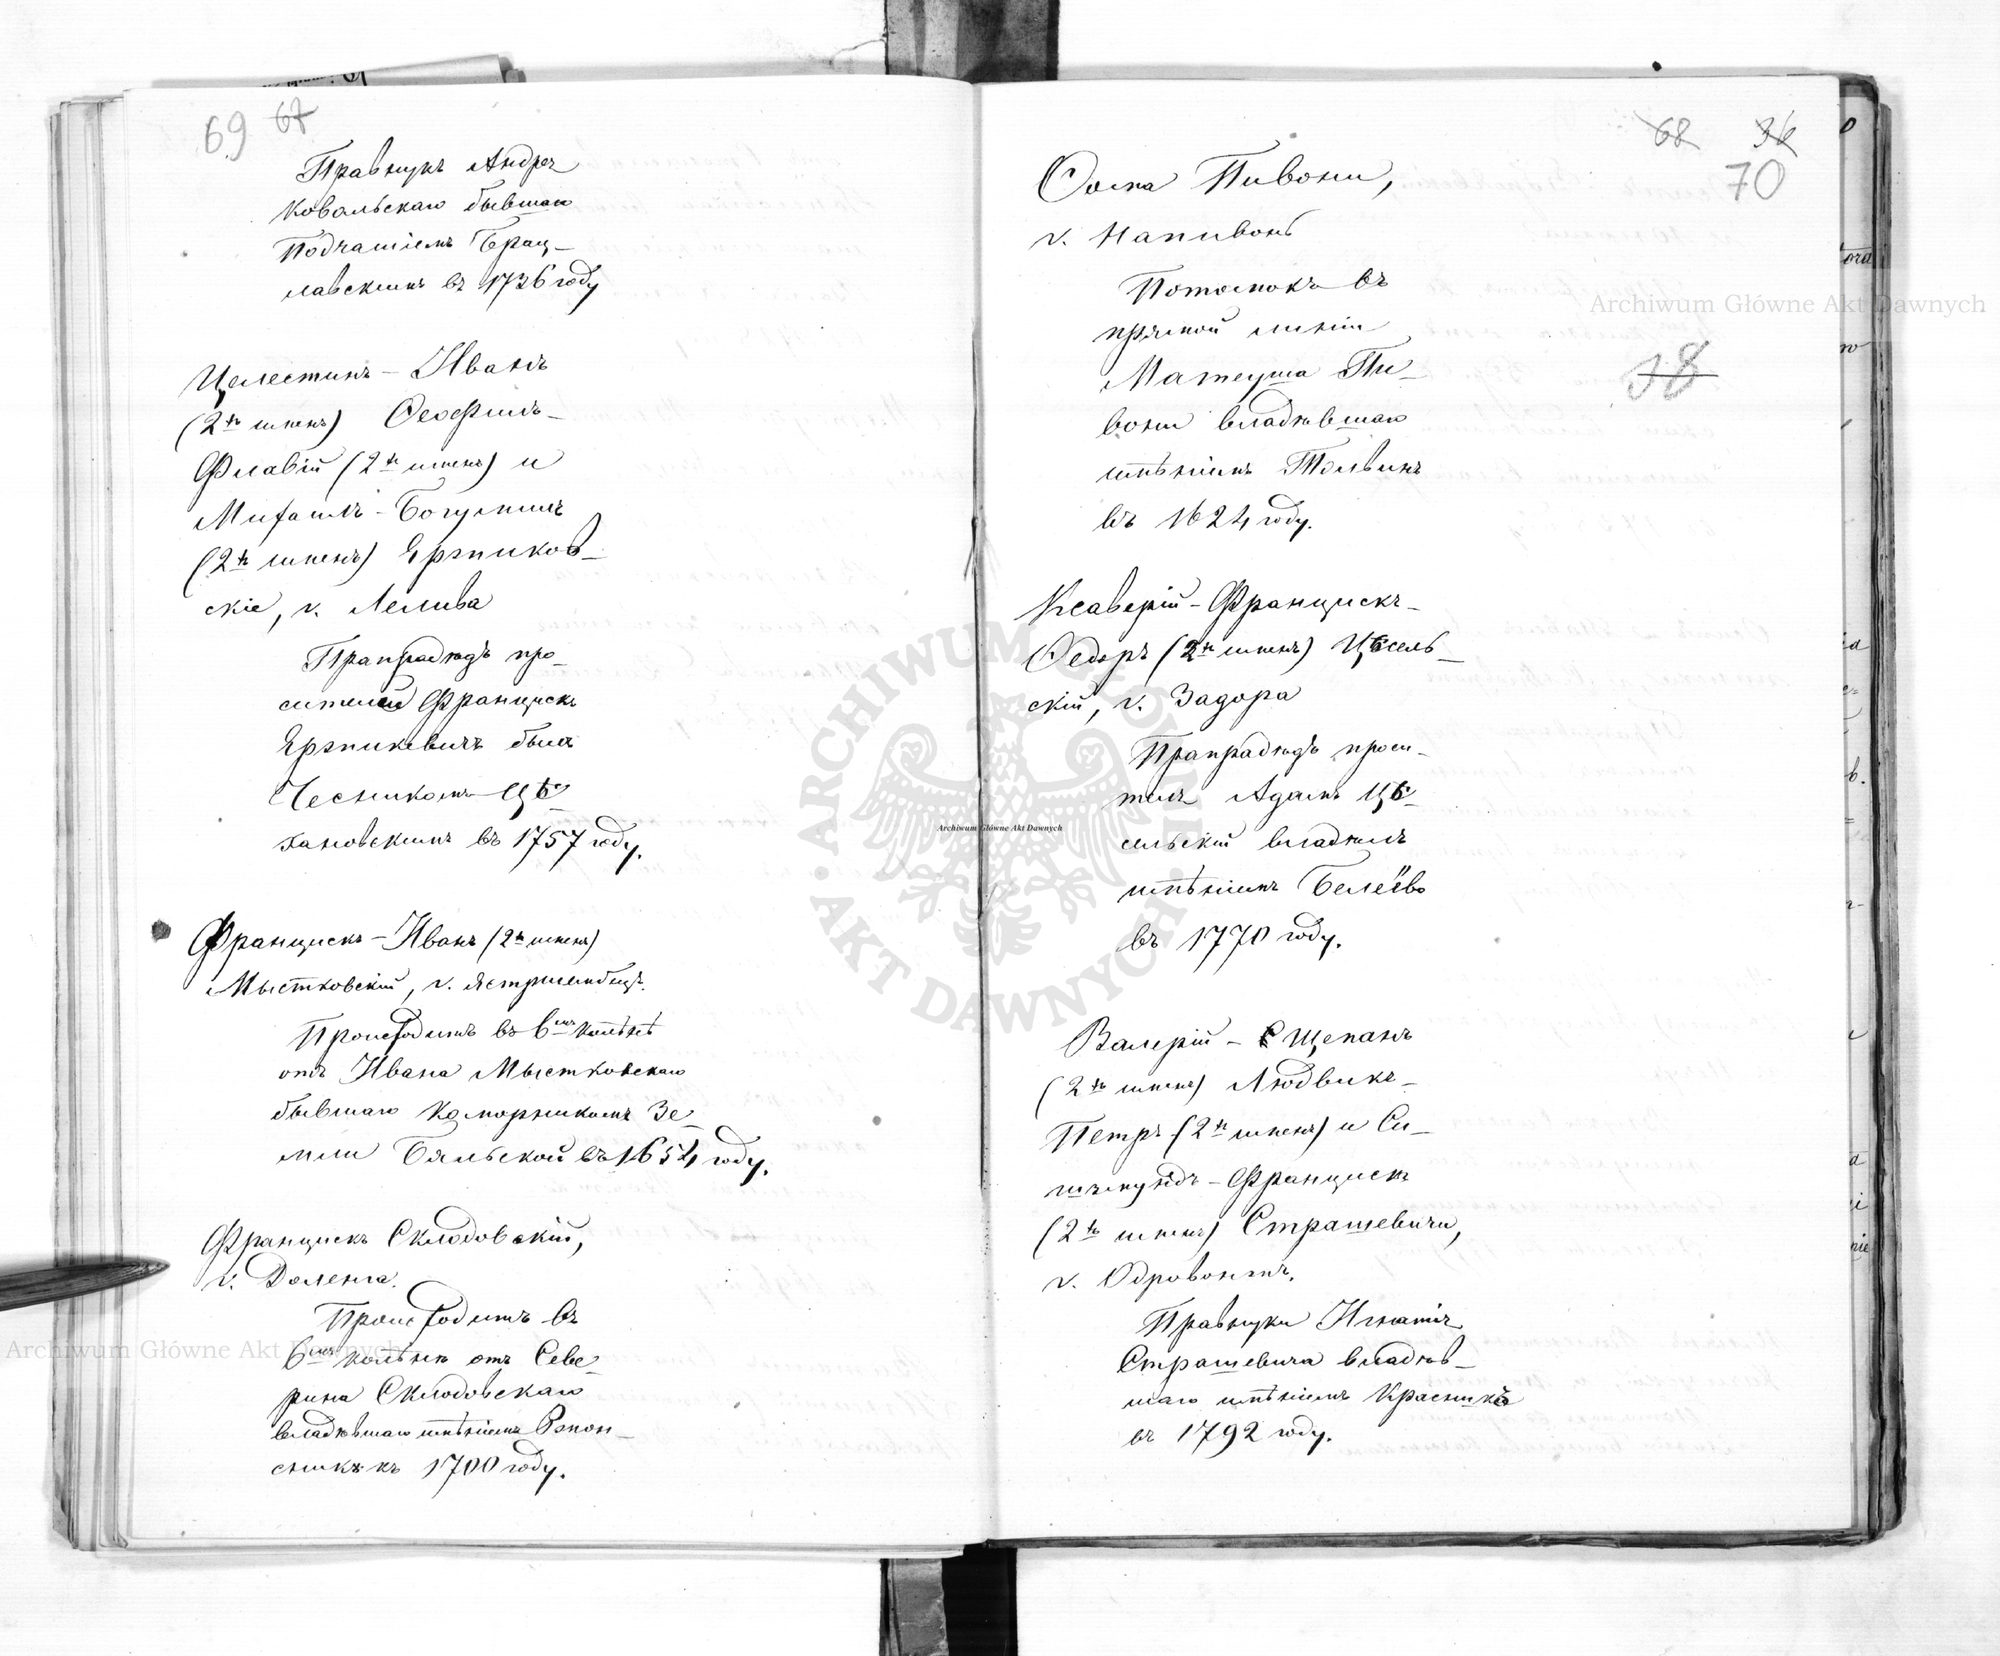 69 67
Правнукъ Андрея
Ковальскаго бывшаго
Подчашіемъ Брац-
лавскимъ въ 1736 году
Целестинъ-Иванъ
(2хъ именъ) Ѳеофилъ-
Флавій (2хъ именъ) и
Михаилъ-Богумилъ
(2хъ именъ) Ерзиков-
скіе, г. Лелива
Прапрадѣдъ про-
сителей Францискъ
Ерзикевичъ былъ
Чесникомъ Цѣ-
хановскимъ въ 1757 году.
Францискъ-Иванъ (2хъ именъ)
Мыстковскій, г. Ястршембецъ.
Происходитъ въ 6мъ колѣнѣ
отъ Ивана Мыстковскаго
бывшаго Коморникомъ Зе-
мли Бяльской въ 1654 году.
Францискъ Склодовскій,
г. Доленга.
Происходитъ въ
6мъ колѣнѣ отъ Севе-
рина Склодовскаго
владѣвшаго имѣніемъ
1700 году.
68 36
70
Ѳома Пивони,
г. Напивонъ
Потомокъ въ
прямой линіи
Матеуша Пи-
вони владѣвшаго
имѣніемъ Тольвинъ
въ 1624 году.
38
Ксаверій-Францискъ-
Ѳедоръ (2хъ именъ) Цѣсель-
скій, г. Задора
Прапрадѣдъ проси-
теля Адамъ Цѣ-
сельскій владѣлъ
имѣніемъ Белеёво
въ 1770 году.
Валерій-Щепанъ
(2хъ именъ) Людвикъ-
Петръ (2хъ именъ) и Си-
гизмундъ-Францискъ
(2хъ именъ) Страшевичи,
г. Одровонжъ.
Правнуки Игнатія
Страшевича владѣв-
шаго имѣніемъ Красники
въ 1792 году.
Archiwum Główne Akt Dawnych
Archiwum Główne Akt Dawnych
Archiwum Główne Akt Dawnych
ARCHIWUM GŁÓWNE AKT DAWNYCH